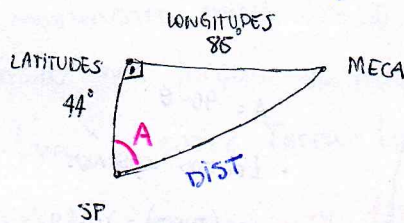 LONGITUDES
86°
LATITUDES
MECA
44°
A
DIST
SP